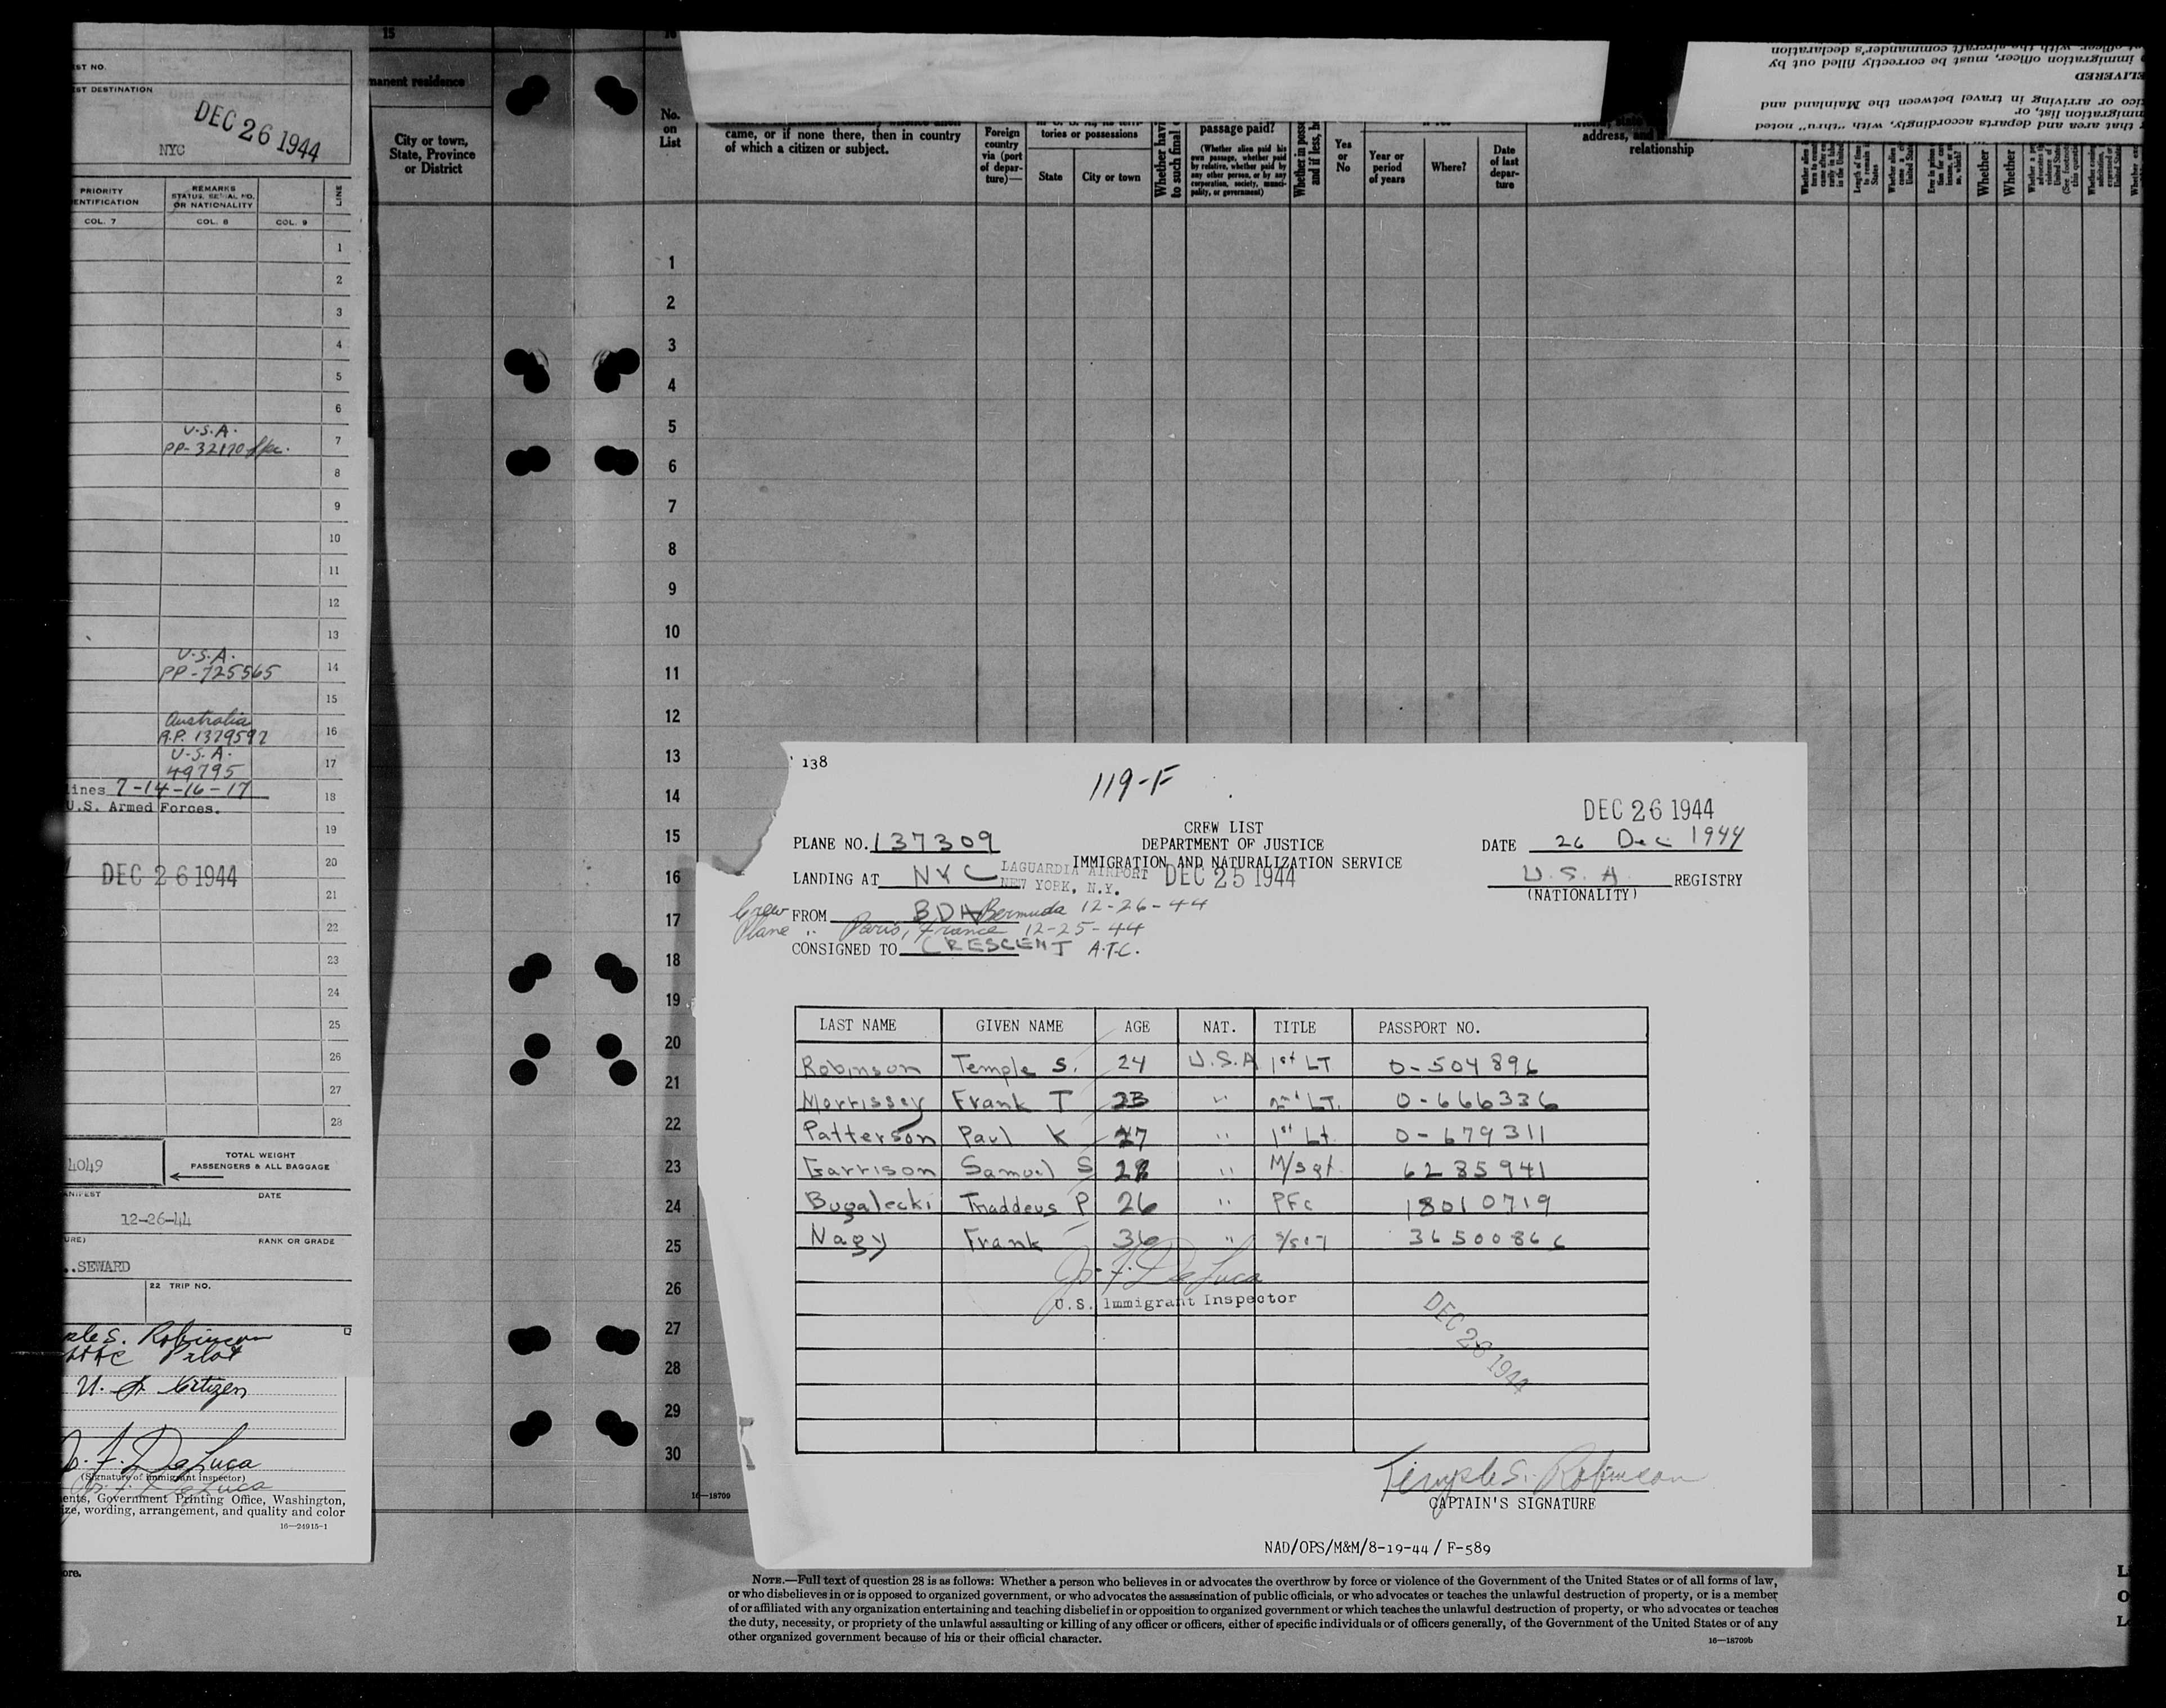 ST NO.
ST DESTINATION
DEC 26 1944
NYC
PRIORITY
ENTIFICATION
REMARKS
STATUS, SERIAL NO.
OR NATIONALITY
LINE
COL. 7 COL. 8 COL. 9
1
2
3
4
5
6
U.S.A.
PP-32170 7
8
9
10
11
12
13
U.S.A.
PP-725565 14
15
Australia
A.P. 1329592 16
U.S.A.
49795 17
lines 7-14-16-17 18
U.S. Armed Forces.
19
20
DEC 26 1944
21
22
23
24
25
26
27
28
4049
TOTAL WEIGHT
PASSENGERS & ALL BAGGAGE
ANIFEST DATE
12-26-44
URE) RANK OR GRADE
.SEWARD
22 TRIP NO.
ple S. Robinson
Pilot
U. S. Citizen
J. F. DeLuca
(Signature of Immigrant Inspector)
J. F. DeLuca
ents, Government Printing Office, Washington,
ze, wording, arrangement, and quality and color
16—24915-1
ore.
15
manent residence
City or town,
State, Province
or District
16
No.
on
List
came, or if none there, then in country
of which a citizen or subject.
Foreign
country
via (port
of depar-
ture)—
torles or possessions
State City or town
Whether have
to such final
passage paid?
(Whether alien paid his
own passage, whether paid
by relative, whether paid by
any other person, or by any
corporation, society, munici-
pality, or government)
Whether in posse
and if less, h
Yes
or
No
Year or
period
of years
Where?
Date
of last
depar-
ture
address, and
relationship
officer, with the aircraft commander's declaration
immigration officer, must be correctly filled out by
ELIVERED
ico or arriving in travel between the Mainland and
immigration list, or
that area and departs accordingly, with "thru" noted
Whether
Whether
1
2
3
4
5
6
7
8
9
10
11
12
13
14
15
16
17
18
19
20
21
22
23
24
25
26
27
28
29
30
16—18709
138
119-F
DEC 26 1944
CREW LIST
PLANE NO. 137309 DEPARTMENT OF JUSTICE DATE 26 Dec 1944
IMMIGRATION AND NATURALIZATION SERVICE
LANDING AT NYC LAGUARDIA AIRPORT
NEW YORK, N.Y. DEC 25 1944
U.S.A REGISTRY
(NATIONALITY)
Crew FROM BDA Bermuda 12-26-44
Plane " Paris, France 12-25-44
CONSIGNED TO CRESCENT A.T.C.
LAST NAME GIVEN NAME AGE NAT. TITLE PASSPORT NO.
Robinson Temple S. 24 U.S.A 1st LT 0-504896
Morrissey Frank T 23 " 2nd LT. 0-666336
Patterson Paul K 27 " 1st Lt 0-679311
Garrison Samuel S 28 " M/sgt. 6285941
Bugalecki Thaddeus P 26 " PFc 18010719
Nagy Frank 36 " S/sgt 36500866
J. F. DeLuca
U.S. Immigrant Inspector
DEC 26 1944
Temple S. Robinson
CAPTAIN'S SIGNATURE
NAD/OPS/M&M/8-19-44 / F-589
NOTE.—Full text of question 28 is as follows: Whether a person who believes in or advocates the overthrow by force or violence of the Government of the United States or of all forms of law,
or who disbelieves in or is opposed to organized government, or who advocates the assassination of public officials, or who advocates or teaches the unlawful destruction of property, or is a member
of or affiliated with any organization entertaining and teaching disbelief in or opposition to organized government or which teaches the unlawful destruction of property, or who advocates or teaches
the duty, necessity, or propriety of the unlawful assaulting or killing of any officer or officers, either of specific individuals or of officers generally, of the Government of the United States or of any
other organized government because of his or their official character.
16—18709b